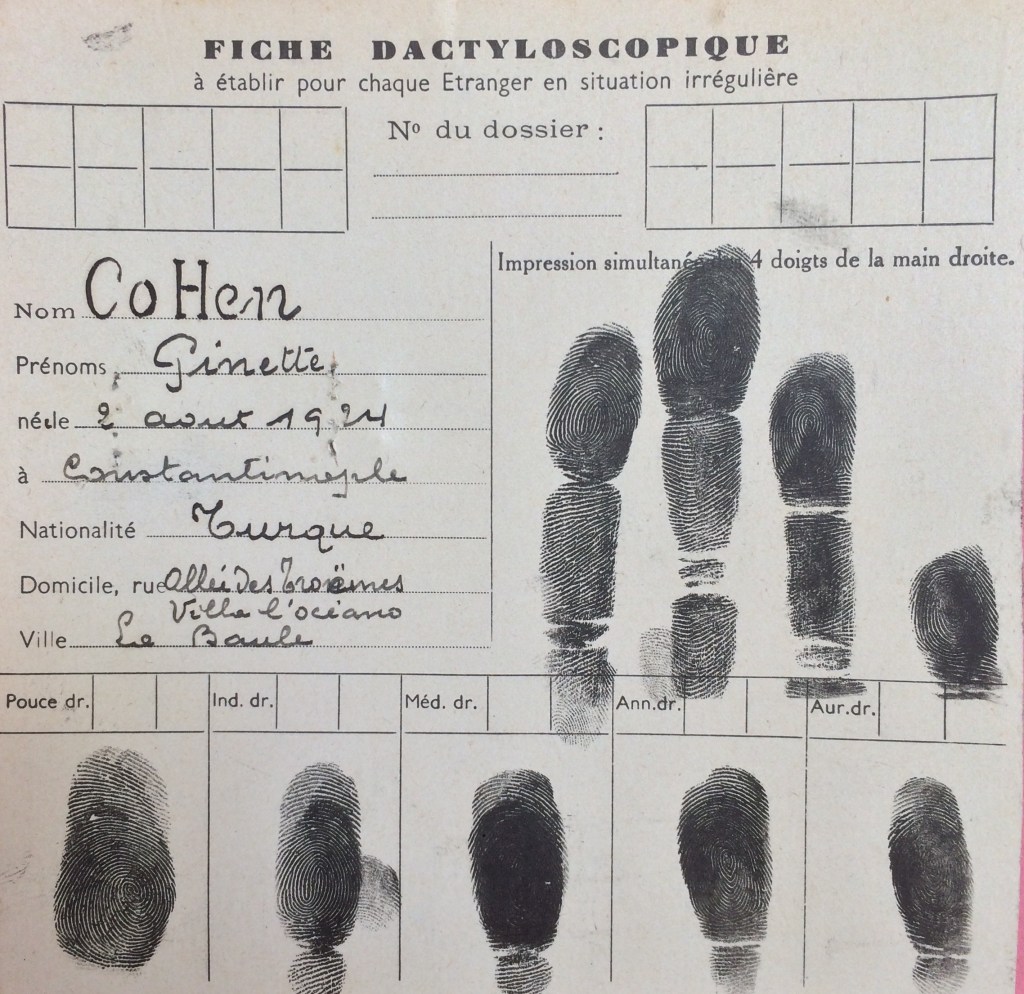 FICHE DACTYLOSCOPIQUE
à établir pour chaque Etranger en situation irrégulière
Nº du dossier :
Impression simultanée des 4 doigts de la main droite.
Nom CoHen
Prénoms Ginette
née le 2 aout 1924
à Constantinople
Nationalité Turque
Domicile, rue Allée des
Villa l'océano
Ville La Baule
Pouce dr. Ind. dr. Méd. dr. Ann. dr. Aur. dr.